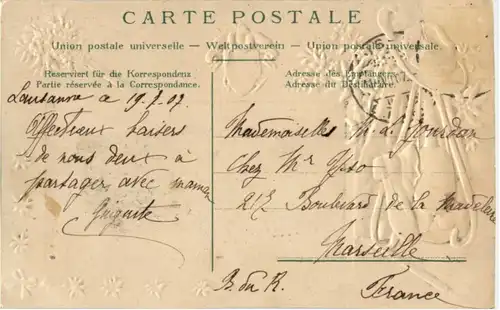 CARTE POSTALE
Union postale universelle – Weltpostverein – Union postale universale.
Reserviert für die Korrespondenz
Partie réservée à la Correspondance.
Adresse des Empfängers
Adresse du Destinataire.
Lausanne a 19.7.07
Affectueux baisers
de nous deux à
partager avec maman
Guiguite
Mademoiselles M. L. Jourdan
Chez Mr
212 Boulevard de la Madelaine
Marseille
B. du R.
France